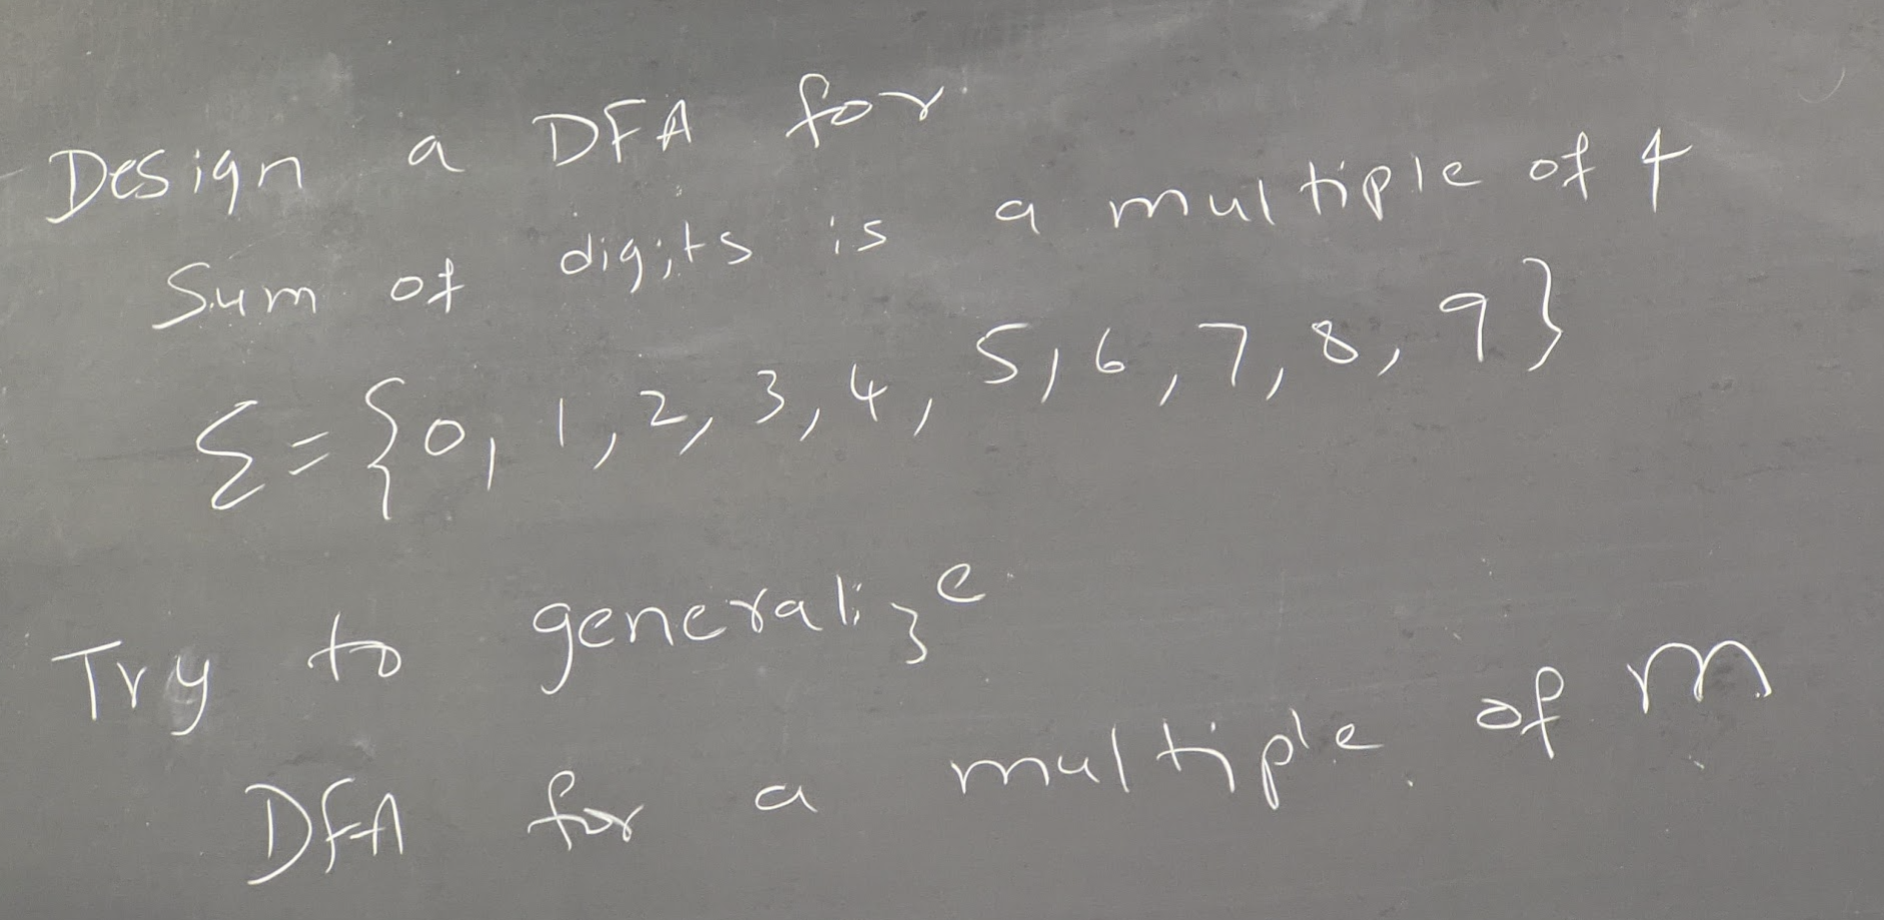 Design a DFA for
Sum of digits is a multiple of 4
Σ = {0, 1, 2, 3, 4, 5, 6, 7, 8, 9}
Try to generalize
DFA for a multiple of m